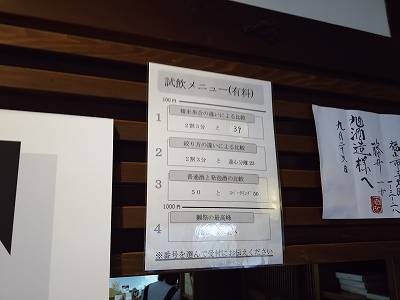 試飲メニュー(有料)
100円
1
精米歩合の違いによる比較
2割3分 と 39
2
絞り方の違いによる比較
2割3分 と 遠心分離23
3
普通酒と発泡酒の比較
50 と スパークリング50
1000円
4
獺祭の最高峰
※番号を選んで受付にお伝えください
旭酒造様へ